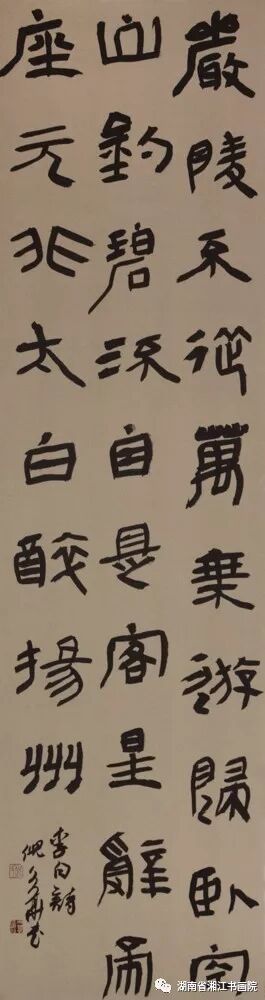 嚴陵不從萬乘遊歸臥空
山釣碧流自是客星辭帝
座元非太白醉揚州
李白詩
倪文華书
湖南省湘江书画院